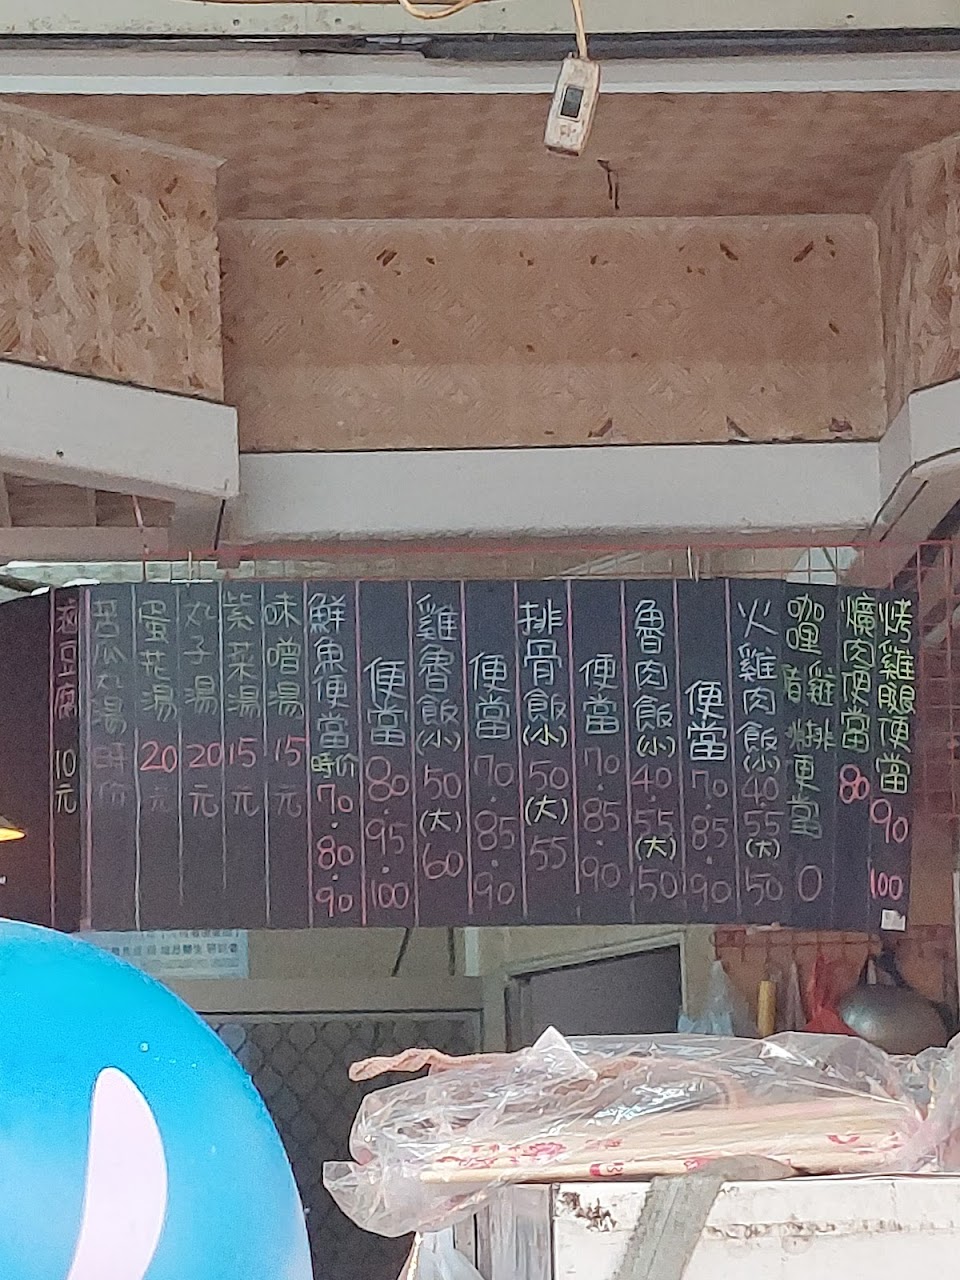 烤雞腿便當 90 100
爌肉便當 80
咖哩雞排 便當 0
火雞肉飯(小)40.55(大)50
便當 70.85.90
魯肉飯(小)40.55(大)50
便當 70.85.90
排骨飯(小)50(大)55
便當 70.85.90
雞魯飯(小)50(大)60
便當 80.95.100
鮮魚便當 時价 70.80.90
味噌湯 15元
紫菜湯 15元
丸子湯 20元
蛋花湯 20元
苦瓜丸湯 時价
豆腐 10元